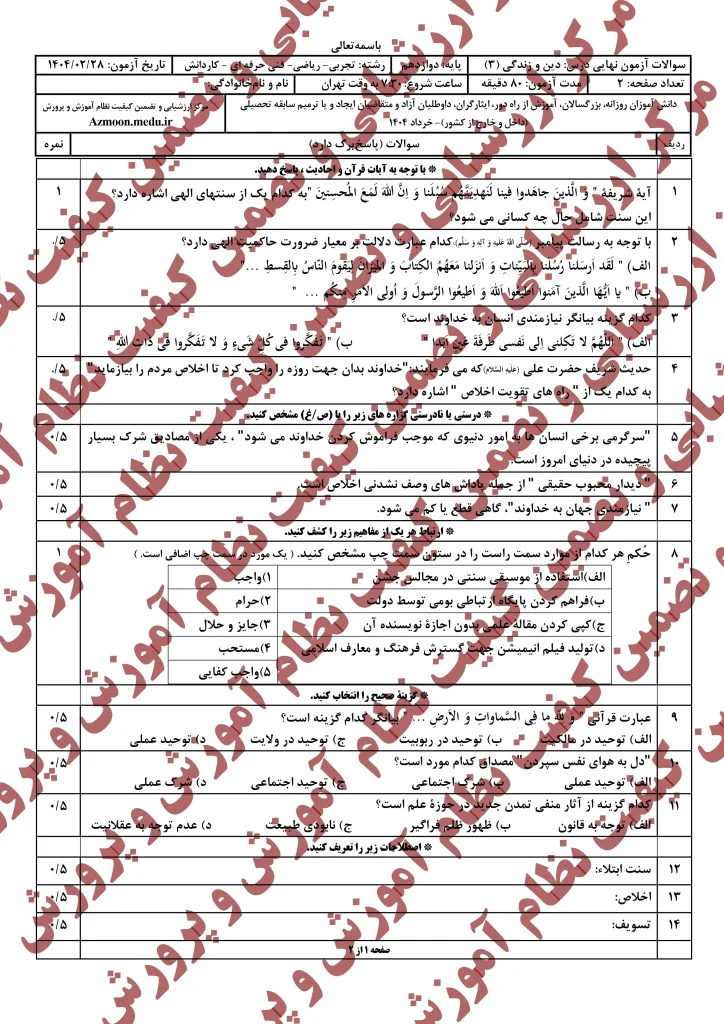 باسمه‌تعالی
سوالات آزمون نهایی درس: دین و زندگی (۳) پایه: دوازدهم رشته: تجربی- ریاضی- فنی حرفه ای - کاردانش تاریخ آزمون: ۱۴۰۴/۰۲/۲۸
تعداد صفحه: ۲ مدت آزمون: ۸۰ دقیقه ساعت شروع: ۷:۳۰ به وقت تهران نام و نام‌خانوادگی:
دانش آموزان روزانه، بزرگسالان، آموزش از راه دور، ایثارگران، داوطلبان آزاد و متقاضیان ایجاد و یا ترمیم سابقه تحصیلی
(داخل و خارج از کشور)- خرداد ۱۴۰۴
مرکز ارزشیابی و تضمین کیفیت نظام آموزش و پرورش
Azmoon.medu.ir
ردیف سوالات (پاسخ‌برگ دارد) نمره
* با توجه به آیات قرآن و احادیث ، پاسخ دهید.
۱ آیۀ شریفۀ " وَ الَّذینَ جاهَدوا فینا لَنَهدِیَنَّهُم سُبُلَنا وَ اِنَّ اللّهَ لَمَعَ المُحسِنینَ "به کدام یک از سنتهای الهی اشاره دارد؟ ۱
این سنت شامل حال چه کسانی می شود؟
۲ با توجه به رسالت پیامبر (صَلَّی اللهُ عَلَیهِ وَ آلِهِ وَ سَلَّم)،کدام عبارت دلالت بر معیار ضرورت حاکمیت الهی دارد؟ ۵/.
الف) " لَقَد اَرسَلنا رُسُلَنا بِالبَیِّناتِ وَ اَنزَلنا مَعَهُمُ الکِتابَ وَ المیزانَ لِیَقومَ النّاسُ بِالقِسطِ ..."
ب) " یا اَیُّهَا الَّذینَ آمَنوا اَطیعُوا اللّهَ وَ اَطیعُوا الرَّسولَ وَ اُولِی الاَمرِ مِنکُم ... "
۳ کدام گزینه بیانگر نیازمندی انسان به خداوند است؟ ۵/.
الف) " اَللّهُمَّ لا تَکِلنی اِلی نَفسی طَرفَةَ عَینٍ اَبَدا " ب) " تَفَکَّروا فی کُلِّ شَیءٍ وَ لا تَفَکَّروا فی ذاتِ اللّهِ "
۴ حدیث شریف حضرت علی (عَلَیهِ السَّلام)که می فرمایند:"خداوند بدان جهت روزه را واجب کرد تا اخلاص مردم را بیازماید" ۵/.
به کدام یک از " راه های تقویت اخلاص " اشاره دارد؟
* درستی یا نادرستی گزاره های زیر را با (ص/غ) مشخص کنید.
۵ "سرگرمی برخی انسان ها به امور دنیوی که موجب فراموش کردن خداوند می شود" ، یکی از مصادیق شرک بسیار ۰/۵
پیچیده در دنیای امروز است.
۶ " دیدار محبوب حقیقی " از جمله پاداش های وصف نشدنی اخلاص است. ۰/۵
۷ " نیازمندی جهان به خداوند"، گاهی قطع یا کم می شود. ۰/۵
* ارتباط هر یک از مفاهیم زیر را کشف کنید.
۸ حُکمِ هر کدام از موارد سمت راست را در ستون سمت چپ مشخص کنید. ( یک مورد در سمت چپ اضافی است. ) ۱
الف)استفاده از موسیقی سنتی در مجالس جشن ۱)واجب
ب)فراهم کردن پایگاه ارتباطی بومی توسط دولت ۲)حرام
ج)کپی کردن مقالۀ علمی بدون اجازۀ نویسنده آن ۳)جایز و حلال
د)تولید فیلم انیمیشن جهت گسترش فرهنگ و معارف اسلامی ۴)مستحب
۵)واجب کفایی
* گزینۀ صحیح را انتخاب کنید.
۹ عبارت قرآنی " وَ لِلّهِ ما فِی السَّماواتِ وَ الاَرضِ ... " بیانگر کدام گزینه است؟ ۰/۵
الف) توحید در مالکیت ب) توحید در ربوبیت ج) توحید در ولایت د) توحید عملی
۱۰ "دل به هوای نفس سپردن" مصداق کدام مورد است؟ ۰/۵
الف) توحید عملی ب) شرک اجتماعی ج) توحید اجتماعی د) شرک عملی
۱۱ کدام گزینه از آثار منفی تمدن جدید در حوزۀ علم است؟ ۰/۵
الف) توجه به قانون ب) ظهور ظلم فراگیر ج) نابودی طبیعت د) عدم توجه به عقلانیت
* اصطلاحات زیر را تعریف کنید.
۱۲ سنت ابتلاء: ۰/۵
۱۳ اخلاص: ۰/۵
۱۴ تسویف: ۰/۵
صفحه ۱ از ۲
مرکز ارزشیابی و تضمین کیفیت نظام آموزش و پرورش